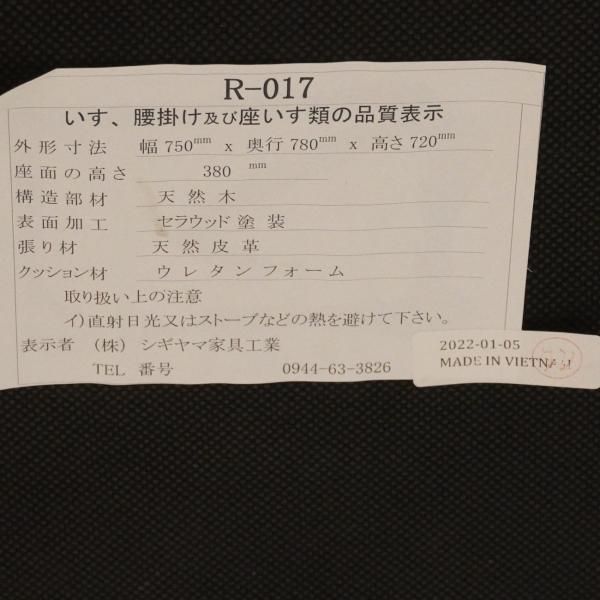 R-017
いす、腰掛け及び座いす類の品質表示
外形寸法 幅 750mm x 奥行 780mm x 高さ 720mm
座面の高さ 380 mm
構造部材 天然木
表面加工 セラウッド塗装
張り材 天然皮革
クッション材 ウレタンフォーム
取り扱い上の注意
イ)直射日光又はストーブなどの熱を避けて下さい。
表示者 (株) シギヤマ家具工業
TEL 番号 0944-63-3826
2022-01-05
MADE IN VIETNAM